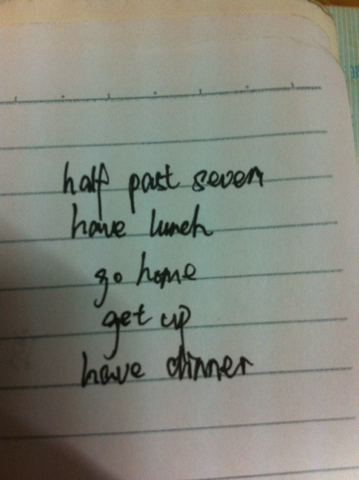 half past seven
have lunch
go home
get up
have dinner